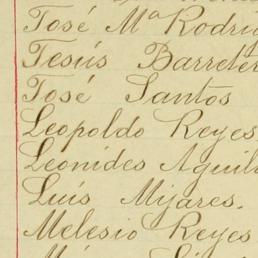 José Mª Rodrig
Jesús Barreter
José Santos
Leopoldo Reyes
Leonides Aguil
Luís Mijares.
Melesio Reyes